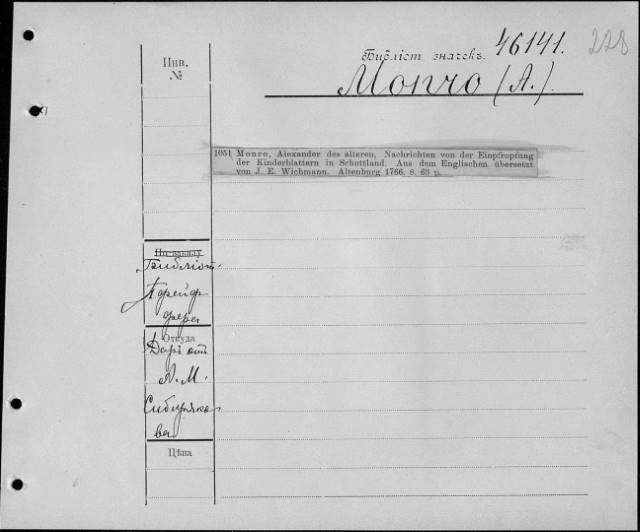 Библіот. значекъ. 46141. 228
Монго (А.)
Инв.
№
1051 Monro, Alexander des älteren, Nachrichten von der Einpfropfung
der Kinderblattern in Schottland. Aus dem Englischen übersetzt
von J. E. Wichmann. Altenburg 1766. 8. 63 p.
По заказу
Библіот.
Откуда
Даръ отъ
А. М.
Сибиряко-
ва
Цѣна